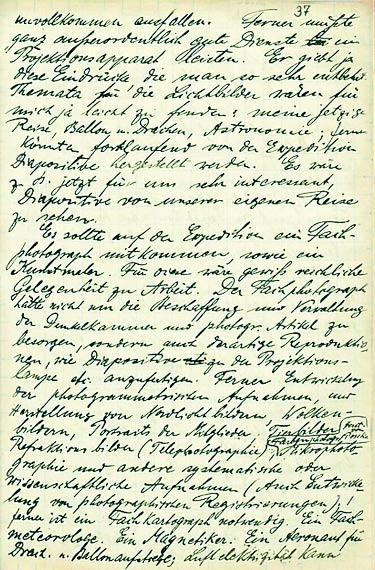 37
unvollkommen ausfallen. Ferner müßte
ganz außerordentlich gute Dienste ein
Projektionsapparat leisten. Er gibt ja
diese Eindrücke die man so sehr entbehrt.
Themata für die Lichtbilder wären für
mich ja leicht zu finden: meine jetzige
Reise, Ballon u. Drachen, Astronomie; ferner
könnten fortlaufend von der Expedition
Diapositive hergestellt werden. Es wäre
z. B. jetzt für uns sehr interessant,
Diapositive von unserer eigenen Reise
zu sehen.
Es sollte auf der Expedition ein Fach-
photograph mitkommen, sowie ein
Kunstmaler. Für diese wäre gewiß reichliche
Gelegenheit zu Arbeit. Der Fachphotograph
hätte nicht nur die Beschaffung und Verwaltung
der Dunkelkammer und photogr. Artikel zu
besorgen, sondern auch derartige Reproduktio-
nen, wie Diapositive zu der Projektions-
lampe etc. anzufertigen. Ferner Entwicklung
der photogrammetrischen Aufnahmen, und
Herstellung von Nordlichtbildern, Wolken-
bildern, Portraits der Mitglieder, Tierbilder
Farbenphotographische
Refraktionsbilder (Telephotographie), Mikrophoto-
graphie und andere systematische oder
wissenschaftliche Aufnahmen (Auch Entwicke-
lung von photographischen Registrierungen);
ferner ist ein Fachkartograph notwendig. Ein Fach-
meteorologe. Ein Magnetiker. Ein Aeronaut für
Drach. u. Ballonaufstiege; Luftelektrizität kann